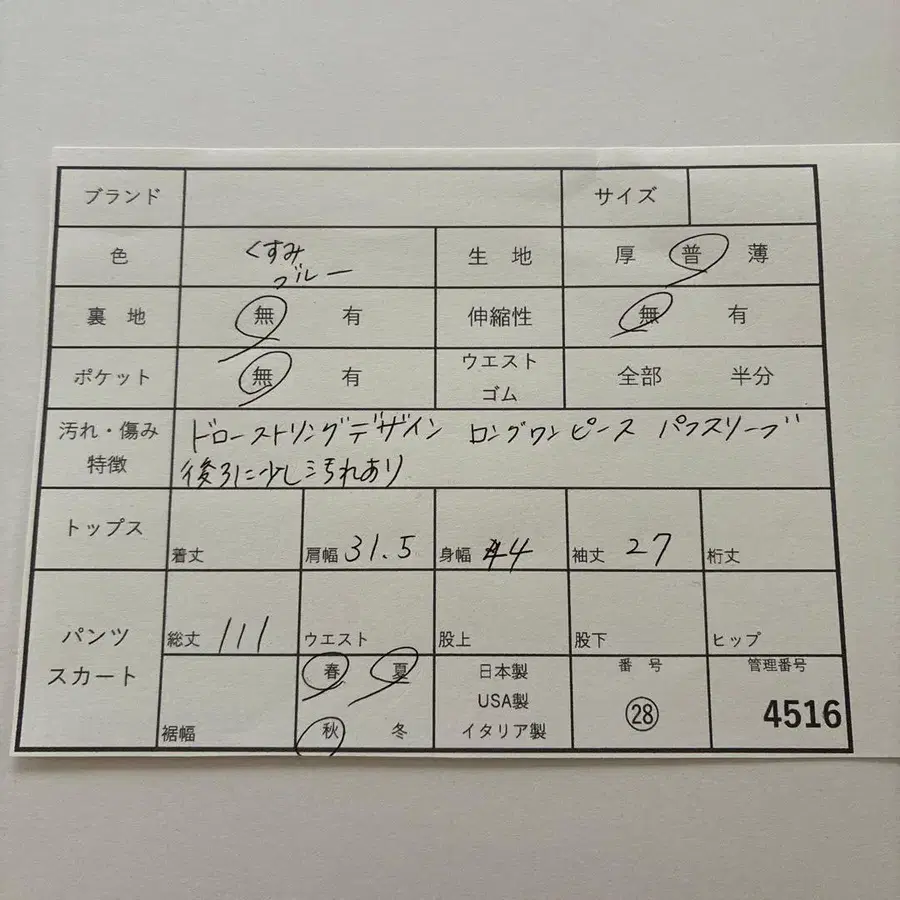 ブランド サイズ
色 くすみブルー 生地 厚 普 薄
裏地 無 有 伸縮性 無 有
ポケット 無 有 ウエストゴム 全部 半分
汚れ・傷み
特徴
ドローストリングデザイン ロングワンピース パフスリーブ
後ろに少し汚れあり
トップス 着丈 肩幅 31.5 身幅 44 袖丈 27 裄丈
パンツ
スカート
総丈 111 ウエスト 股上 股下 ヒップ
裾幅 春 夏 秋 冬
日本製
USA製
イタリア製
番号 ㉘
管理番号 4516